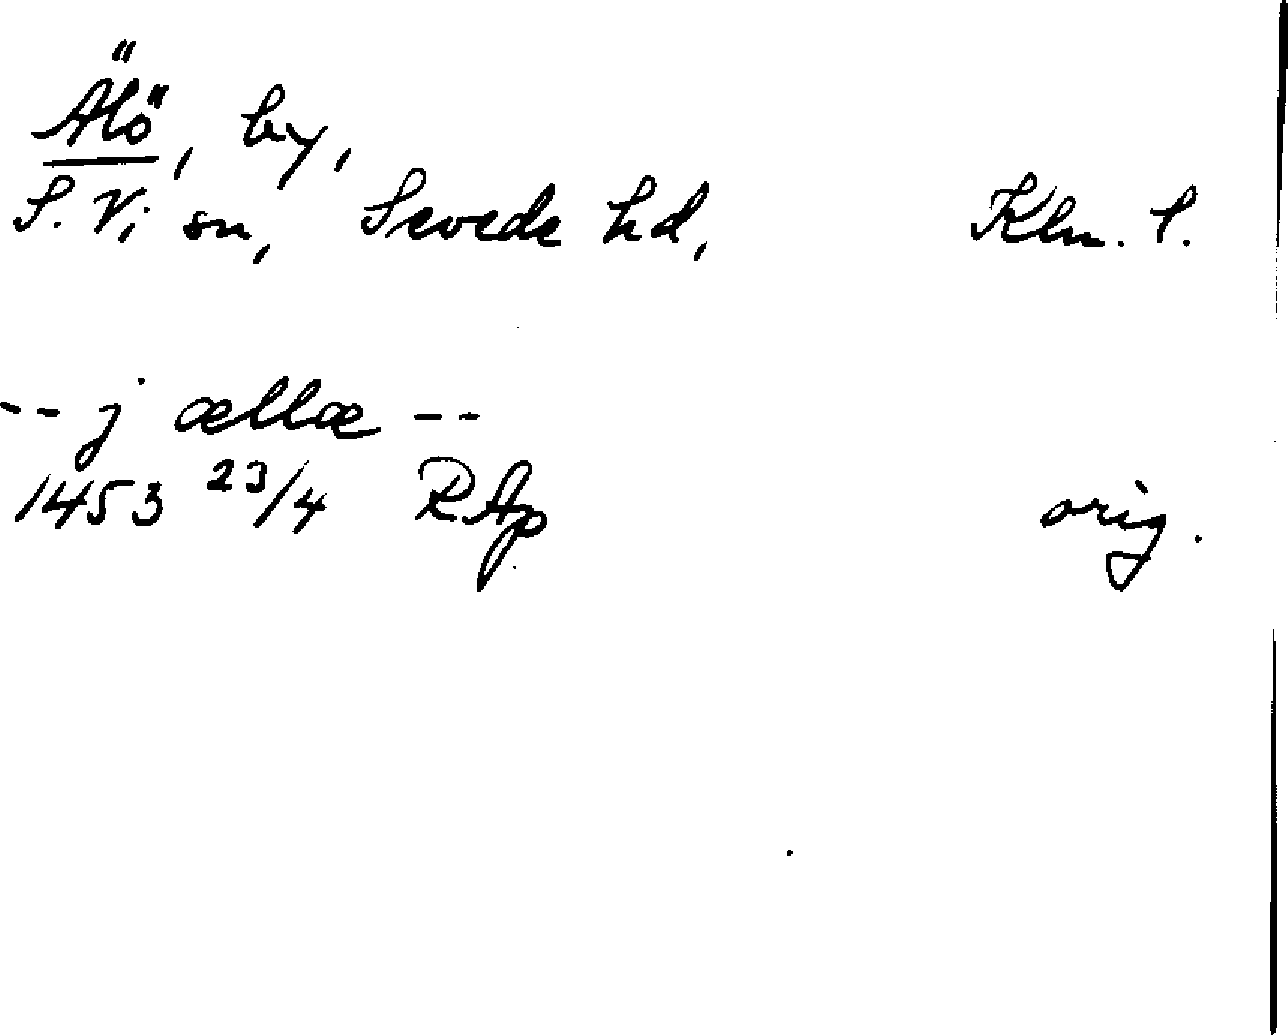 Älö, by,
S. Vi sn, Sevede hd, Klm. l.
-- j ællæ --
1453 23/4 RAp orig.